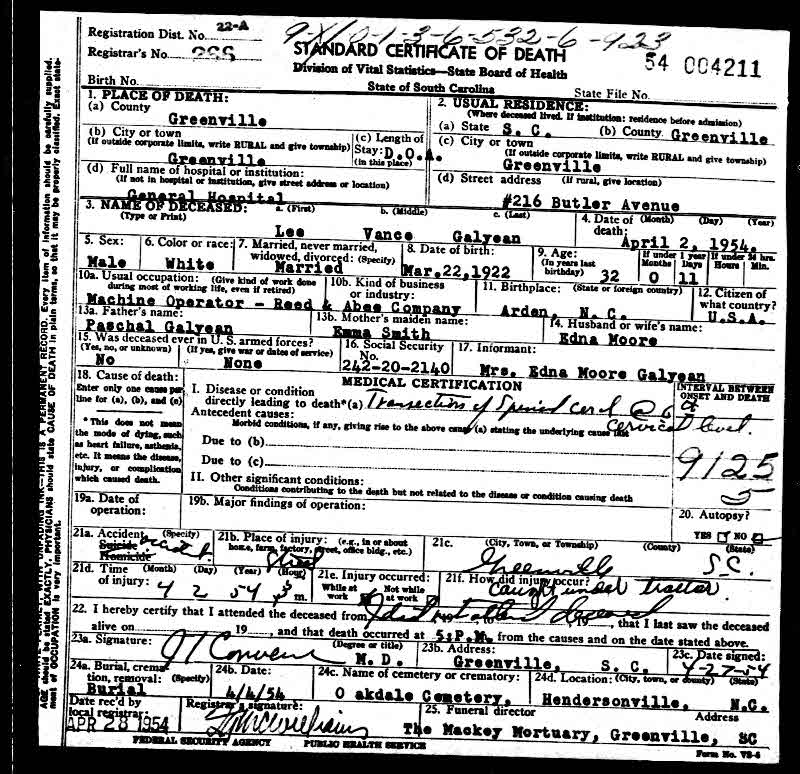 Registration Dist. No. 22-A
Registrar's No.
STANDARD CERTIFICATE OF DEATH
Division of Vital Statistics—State Board of Health
State of South Carolina
54 004211
Birth No.
State File No.
1. PLACE OF DEATH:
(a) County
Greenville
(b) City or town
(If outside corporate limits, write RURAL and give township)
Greenville
(c) Length of
Stay: D.O.A.
(in this place)
(d) Full name of hospital or institution:
(If not in hospital or institution, give street address or location)
General Hospital
2. USUAL RESIDENCE:
(Where deceased lived. If institution: residence before admission)
(a) State S. C. (b) County Greenville
(c) City or town
(If outside corporate limits, write RURAL and give township)
Greenville
(d) Street address (If rural, give location)
#216 Butler Avenue
3. NAME OF DECEASED: a. (First) b. (Middle) c. (Last)
(Type or Print)
Lee Vance Galyean
4. Date of (Month) (Day) (Year)
death:
April 2, 1954.
5. Sex:
Male
6. Color or race:
White
7. Married, never married,
widowed, divorced: (Specify)
Married
8. Date of birth:
Mar.22,1922
9. Age:
(In years last
birthday) 32
If under 1 year
Months Days
0 11
If under 24 hrs.
Hours Min.
10a. Usual occupation: (Give kind of work done
during most of working life, even if retired)
10b. Kind of business
or industry:
Machine Operator - Reed & Abee Company
11. Birthplace: (State or foreign country)
Arden, N. C.
12. Citizen of
what country?
U.S.A.
13a. Father's name:
Paschal Galyean
13b. Mother's maiden name:
Emma Smith
14. Husband or wife's name:
Edna Moore
15. Was deceased ever in U. S. armed forces?
(Yes, no, or unknown) (If yes, give war or dates of service)
No None
16. Social Security
No.
242-20-2140
17. Informant:
Mrs. Edna Moore Galyean
18. Cause of death:
Enter only one cause per
line for (a), (b), and (c)
* This does not mean
the mode of dying, such
as heart failure, asthenia,
etc. It means the disease,
injury, or complication
which caused death.
MEDICAL CERTIFICATION
INTERVAL BETWEEN
ONSET AND DEATH
I. Disease or condition
directly leading to death*(a) Transection of Spinal cord @ 6
Antecedent causes: cervical level.
Morbid conditions, if any, giving rise to the above cause (a) stating the underlying cause last
Due to (b)
Due to (c)
9125
5
II. Other significant conditions:
Conditions contributing to the death but not related to the disease or condition causing death
19a. Date of
operation:
19b. Major findings of operation:
20. Autopsy?
YES NO
21a. Accident, (Specify)
Suicide
Homicide
accident
21b. Place of injury: (e.g., in or about
home, farm, factory, street, office bldg., etc.)
Street
21c. (City, Town, or Township) (County) (State)
Greenville S.C.
21d. Time (Month) (Day) (Year) (Hour)
of injury: 4 2 54 3 m.
21e. Injury occurred:
While at work Not while at work
21f. How did injury occur?
Caught under tractor.
22. I hereby certify that I attended the deceased from I did not attend deceased, that I last saw the deceased
alive on 19 , and that death occurred at 5:P.M. from the causes and on the date stated above.
23a. Signature: (Degree or title)
M. D.
23b. Address:
Greenville, S. C.
23c. Date signed:
4-27-54
24a. Burial, crema-
tion, removal: (Specify)
Burial
24b. Date:
4/4/54
24c. Name of cemetery or crematory:
O akdale Cemetery,
24d. Location: (City, town, or county) (State)
Hendersonville, N.C.
Date rec'd by
local registrar:
APR 28 1954
Registrar's signature:
25. Funeral director Address
The Mackey Mortuary, Greenville, SC
FEDERAL SECURITY AGENCY PUBLIC HEALTH SERVICE
Form No. VS-4